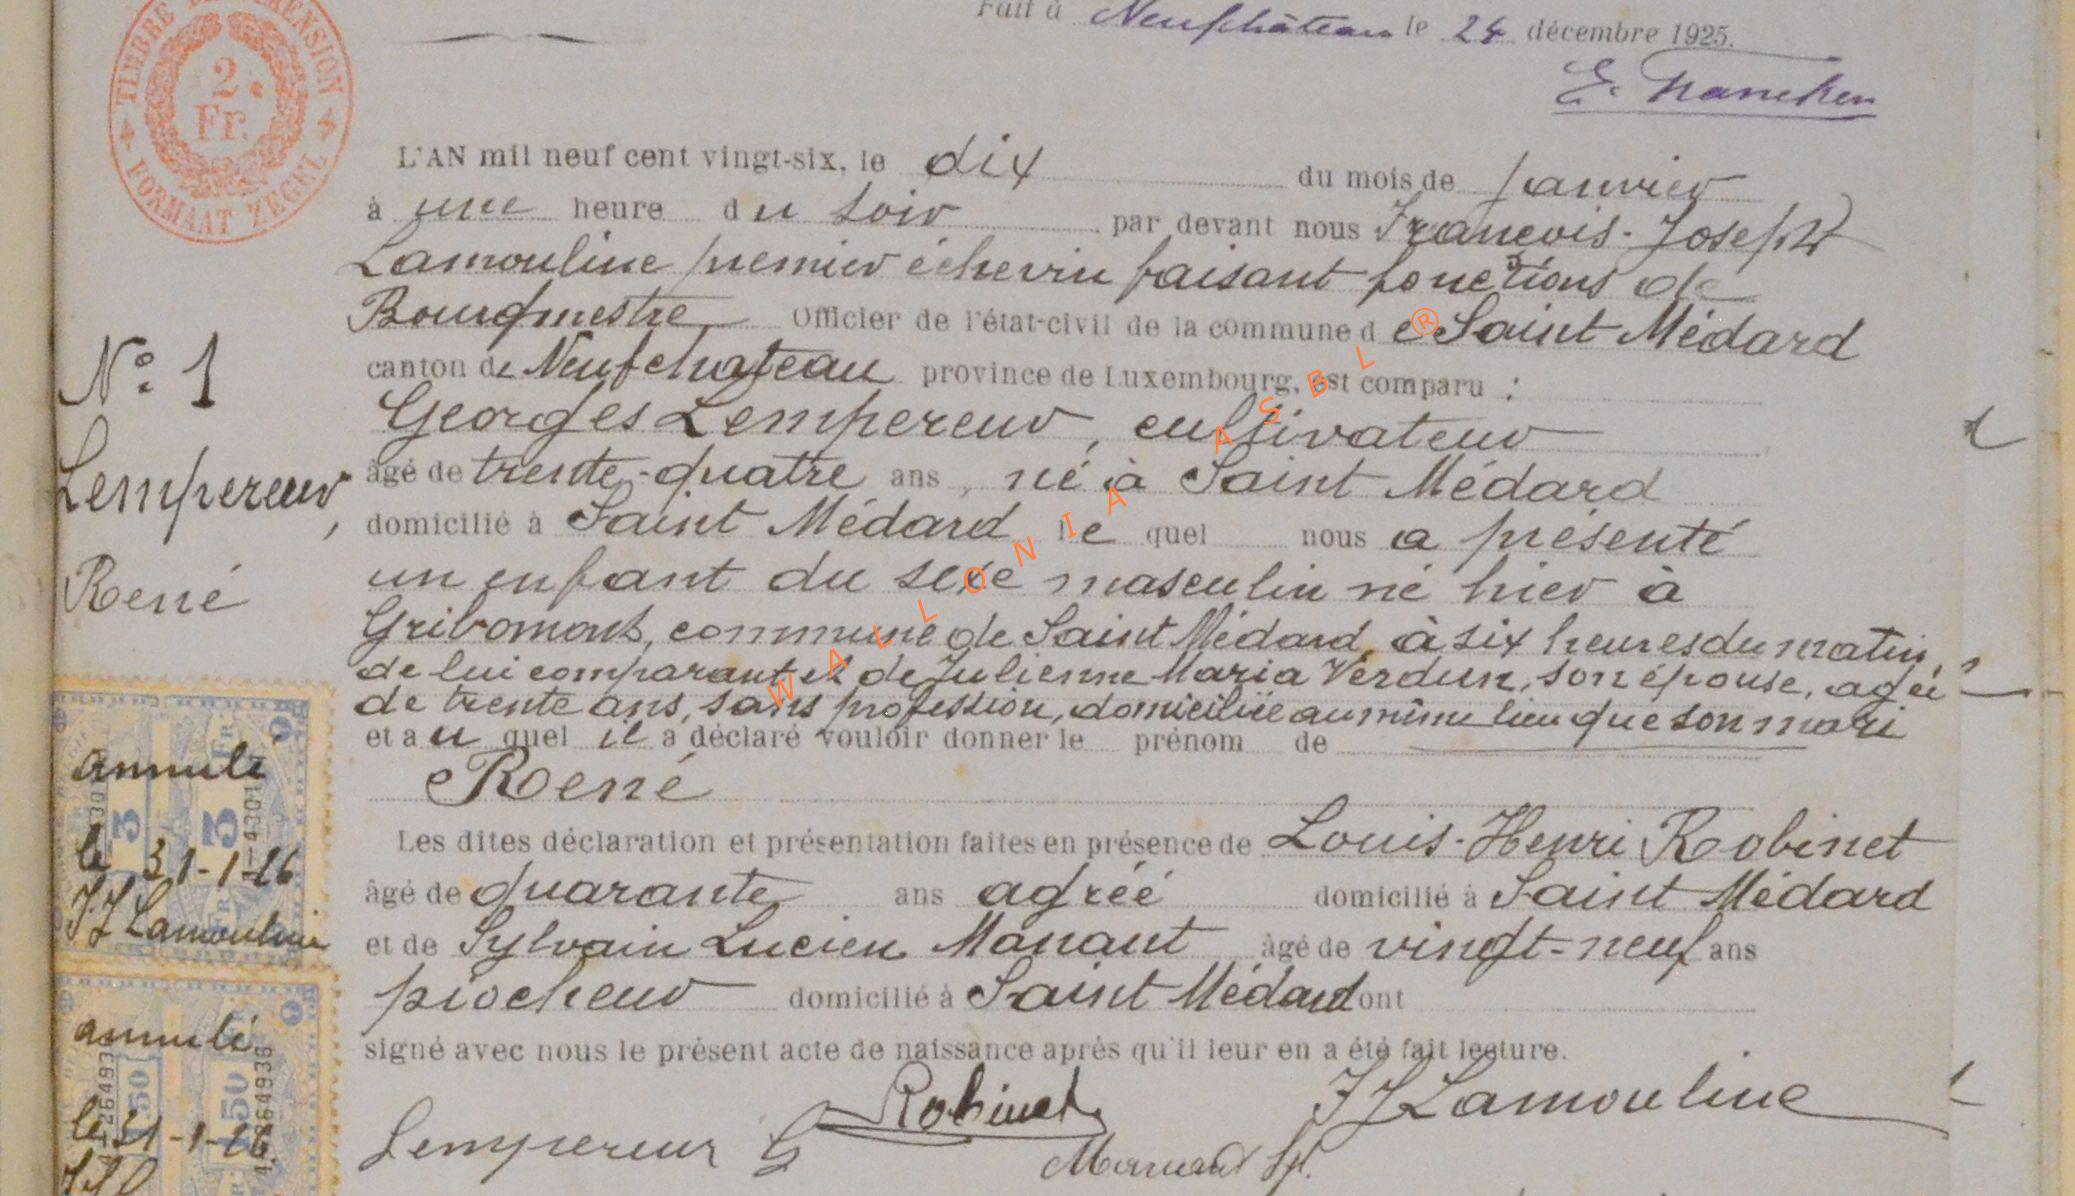 TIMBRE DIMENSION
2.
Fr.
FORMAAT ZEGEL
Fait à Neufchâteau le 24 décembre 1925.
E. Francken
L'AN mil neuf cent vingt-six, le dix du mois de janvier
à une heure du soir par devant nous François-Joseph
Lamouline premier échevin faisant fonctions de
Bourgmestre Officier de l'état-civil de la commune de Saint Médard
canton de Neufchateau province de Luxembourg, est comparu :
Georges Lempereur, cultivateur
âgé de trente-quatre ans, né à Saint Médard
domicilié à Saint Médard le quel nous a présenté
un enfant du sexe masculin né hier à
Gribomont, commune de Saint Médard, à six heures du matin,
de lui comparant et de Julienne Maria Verdun, son épouse, agée
de trente ans, sans profession, domiciliée au même lieu que son mari
et au quel il a déclaré vouloir donner le prénom de
René
Les dites déclaration et présentation faites en présence de Louis-Henri Robinet
âgé de quarante ans agréé domicilié à Saint Médard
et de Sylvain Lucien Manant âgé de vingt-neuf ans
piocheur domicilié à Saint Médard ont
signé avec nous le présent acte de naissance après qu'il leur en a été fait lecture.
Robinet
FJ Lamouline
Lempereur G
N° 1
Lempereur,
René
annulé
3 3
le 31-1-26
FJ Lamouline
annulé
50 1 50
le 31-1-26
WALLONIA ASBL ®